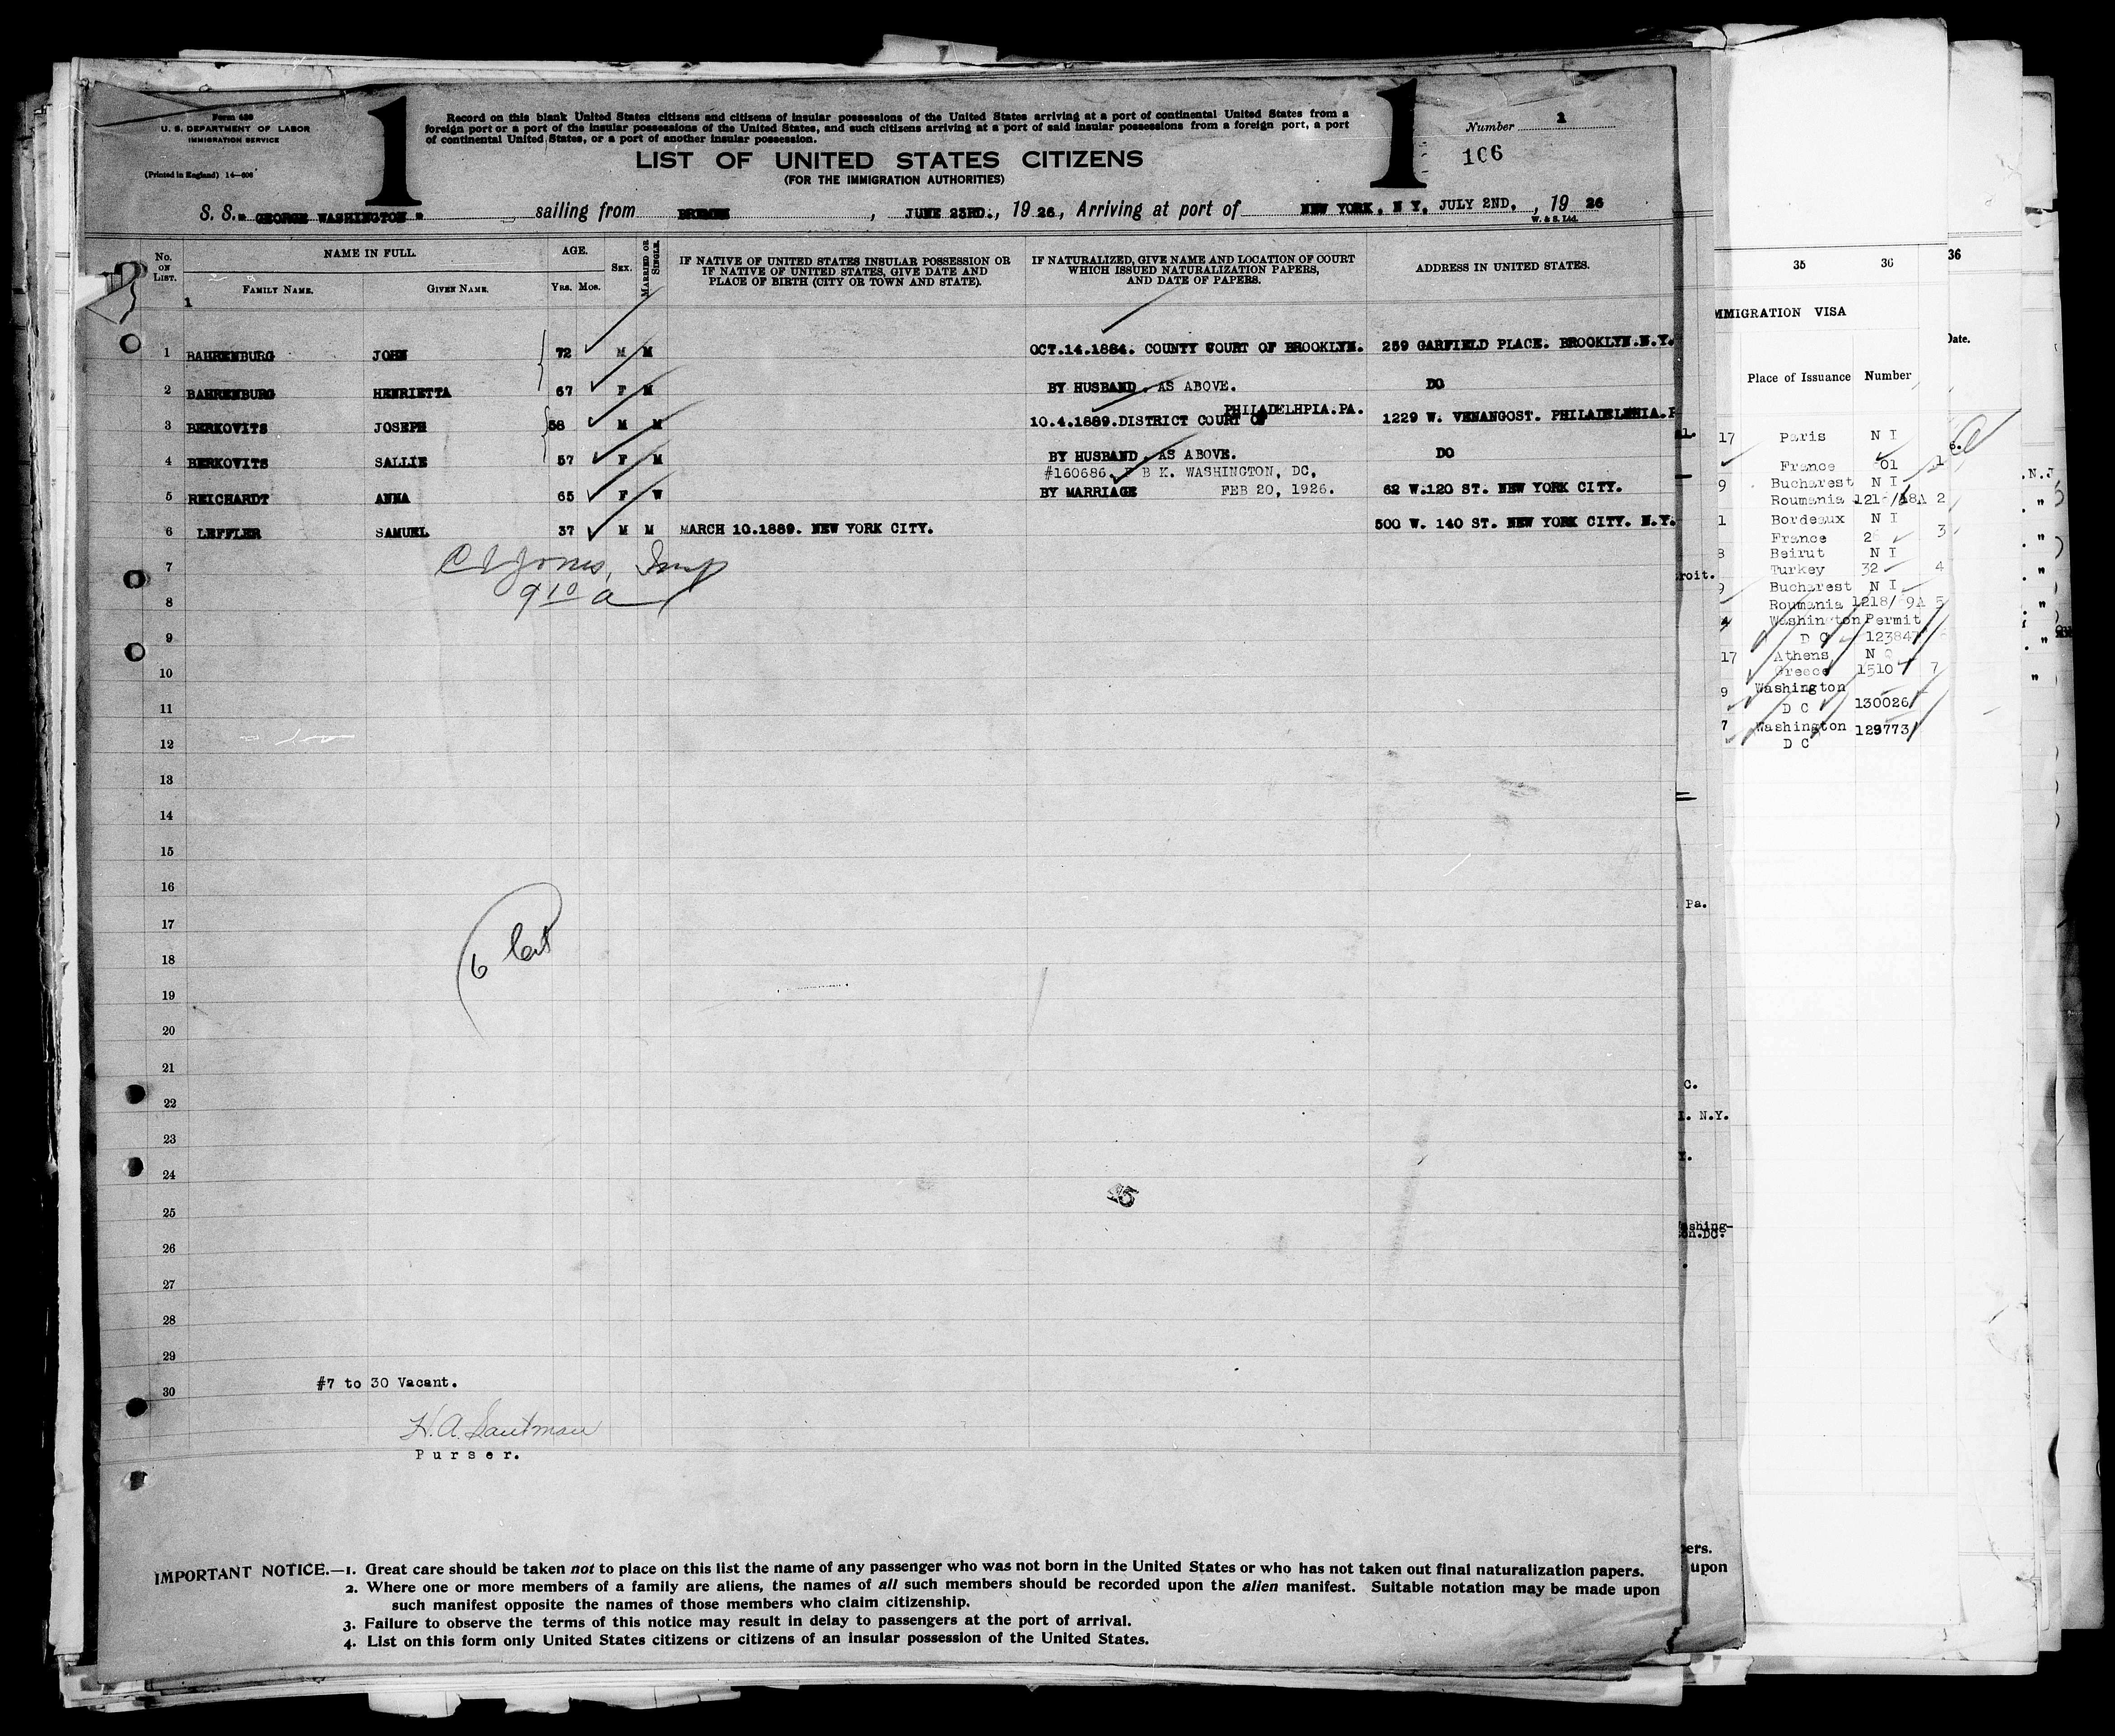 Form 630
U. S. DEPARTMENT OF LABOR
IMMIGRATION SERVICE
(Printed in England) 14—606
1
Record on this blank United States citizens and citizens of insular possessions of the United States arriving at a port of continental United States from a
foreign port or a port of the insular possessions of the United States, and such citizens arriving at a port of said insular possessions from a foreign port, a port
of continental United States, or a port of another insular possession.
LIST OF UNITED STATES CITIZENS
(FOR THE IMMIGRATION AUTHORITIES)
1
Number 1
106
S. S. " GEORGE WASHINGTON " sailing from BREMEN, JUNE 23RD., 1926, Arriving at port of NEW YORK, N Y, JULY 2ND, , 19 26
W. & S. Ltd.
No. ON LIST.
NAME IN FULL.
FAMILY NAME. GIVEN NAME.
AGE.
Yrs. Mos.
SEX.
MARRIED OR SINGLE.
IF NATIVE OF UNITED STATES INSULAR POSSESSION OR
IF NATIVE OF UNITED STATES, GIVE DATE AND
PLACE OF BIRTH (CITY OR TOWN AND STATE).
IF NATURALIZED, GIVE NAME AND LOCATION OF COURT
WHICH ISSUED NATURALIZATION PAPERS,
AND DATE OF PAPERS.
ADDRESS IN UNITED STATES.
1
1 BAHRENBURG JOHN 72 M M OCT.14.1884. COUNTY COURT OF BROOKLYN. 259 GARFIELD PLACE. BROOKLYN.N.Y.
2 BAHRENBURG HENRIETTA 67 F M BY HUSBAND. AS ABOVE. DO
PHILADELHPIA.PA.
3 BERKOVITS JOSEPH 58 M M 10.4.1889.DISTRICT COURT OF 1229 W. VENANGOST. PHILADELPHIA.P
4 BERKOVITS SALLIE 57 F M BY HUSBAND. AS ABOVE. DO
#160686. B K. WASHINGTON, DC,
5 REICHARDT ANNA 65 F W BY MARRIAGE FEB 20, 1926. 62 W.120 ST. NEW YORK CITY.
6 LEFFLER SAMUEL 37 M M MARCH 10.1889. NEW YORK CITY. 500 W. 140 ST. NEW YORK CITY. N.Y.
Jones, Insp
7
9 10 a
8
9
10
11
12
13
14
15
16
17
6
18
19
20
21
22
23
24
25
26
27
28
29
#7 to 30 Vacant.
30
H. A.
Purser.
IMPORTANT NOTICE.—1. Great care should be taken not to place on this list the name of any passenger who was not born in the United States or who has not taken out final naturalization papers.
2. Where one or more members of a family are aliens, the names of all such members should be recorded upon the alien manifest. Suitable notation may be made upon
such manifest opposite the names of those members who claim citizenship.
3. Failure to observe the terms of this notice may result in delay to passengers at the port of arrival.
4. List on this form only United States citizens or citizens of an insular possession of the United States.
35 36 36
MMIGRATION VISA
Date.
Place of Issuance Number
17 Paris N I
France 01 1
9 Bucharest N I
Roumania 2
1 Bordeaux N I
France 3
8 Beirut N I
Turkey 32 4
9 Bucharest N I
Roumania 1218/ 9A 5
Washington Permit
D C 123847
17 Athens N
Greece 1510 7
9 Washington
D C 130026
7 Washington 129773
D C
roit.
Pa.
C.
N.Y.
Y.
ashing-
on.DC.
ers.
upon